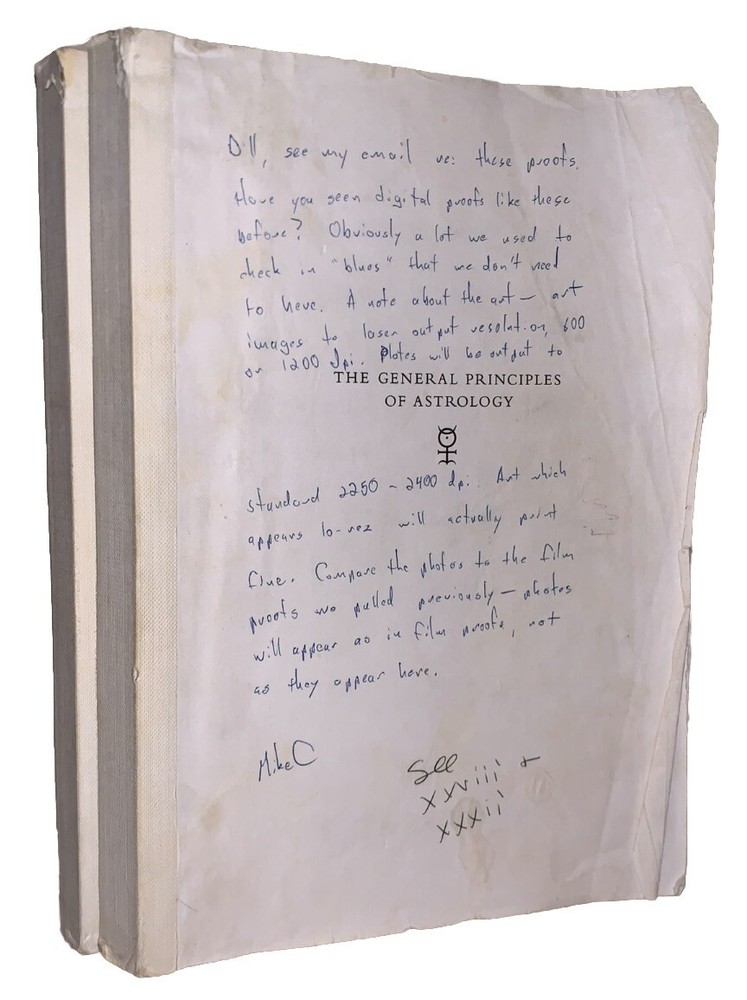 Dll, see my email re: these proofs.
Have you seen digital proofs like these
before? Obviously a lot we used to
check in "blues" that we don't need
to here. A note about the art — art
images to laser output resolution, 600
or 1200 dpi. Plates will be output to
THE GENERAL PRINCIPLES
OF ASTROLOGY
standard 2250 - 2400 dpi. Art which
appears lo-rez will actually print
fine. Compare the photos to the film
proofs we pulled previously — photos
will appear as in film proofs, not
as they appear here.
Mike C
See
xxviii +
xxxii